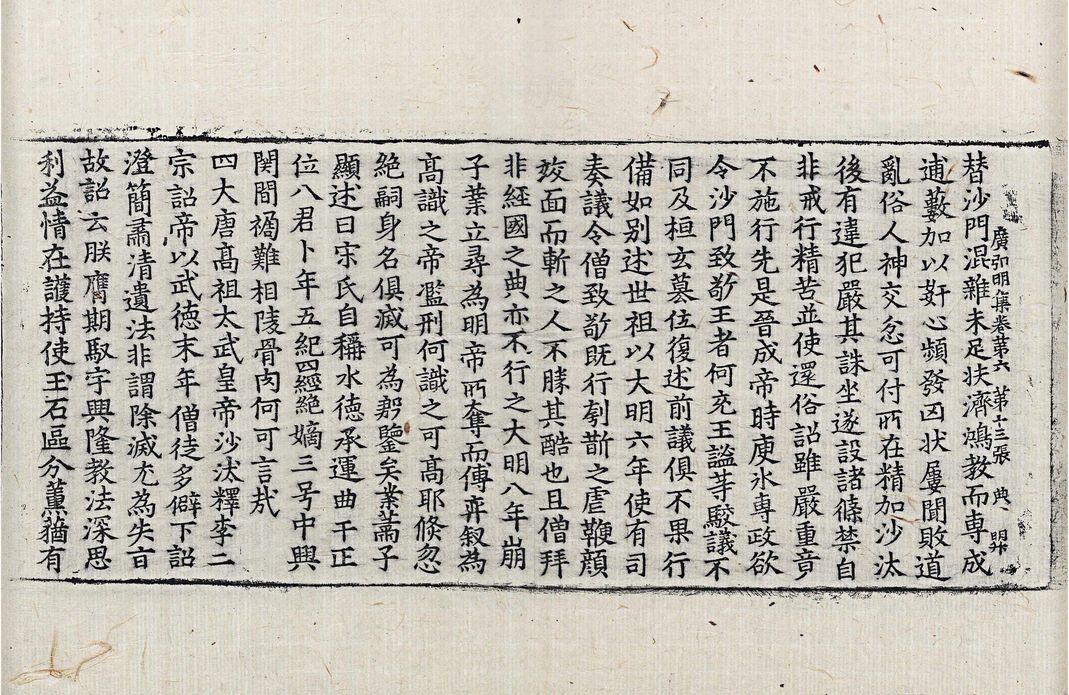 廣弘明集卷第六 第十三張 典
替沙門混雜未足扶濟鴻教而專成
逋藪加以奸心頻發凶狀屢聞敗道
亂俗人神交忿可付所在精加沙汰
後有違犯嚴其誅坐遂設諸條禁自
非戒行精苦並使還俗詔雖嚴重竟
不施行先是晉成帝時庾氷專政欲
令沙門致敬王者何充王謐等駮議不
同及桓玄篡位復述前議俱不果行
備如别述世祖以大明六年使有司
奏議令僧致敬既行刳斮之虐鞭顏
竣面而斬之人不勝其酷也且僧拜
非經國之典亦不行之大明八年崩
子業立尋為明帝所奪而傅弈叙為
髙識之帝濫刑何識之可髙耶倏忽
絶嗣身名俱滅可為殷鑒矣業蕭子
顯述曰宋氏自稱水德承運曲干正
位八君卜年五紀四經絶嫡三号中興
関間禍難相陵骨肉何可言㢤
四大唐髙祖太武皇帝沙汰釋李二
宗詔帝以武德末年僧徒多僻下詔
澄簡肅清遺法非謂除滅尤為失旨
故詔云朕膺期馭宇興隆教法深思
利益情在護持使玉石區分薰蕕有